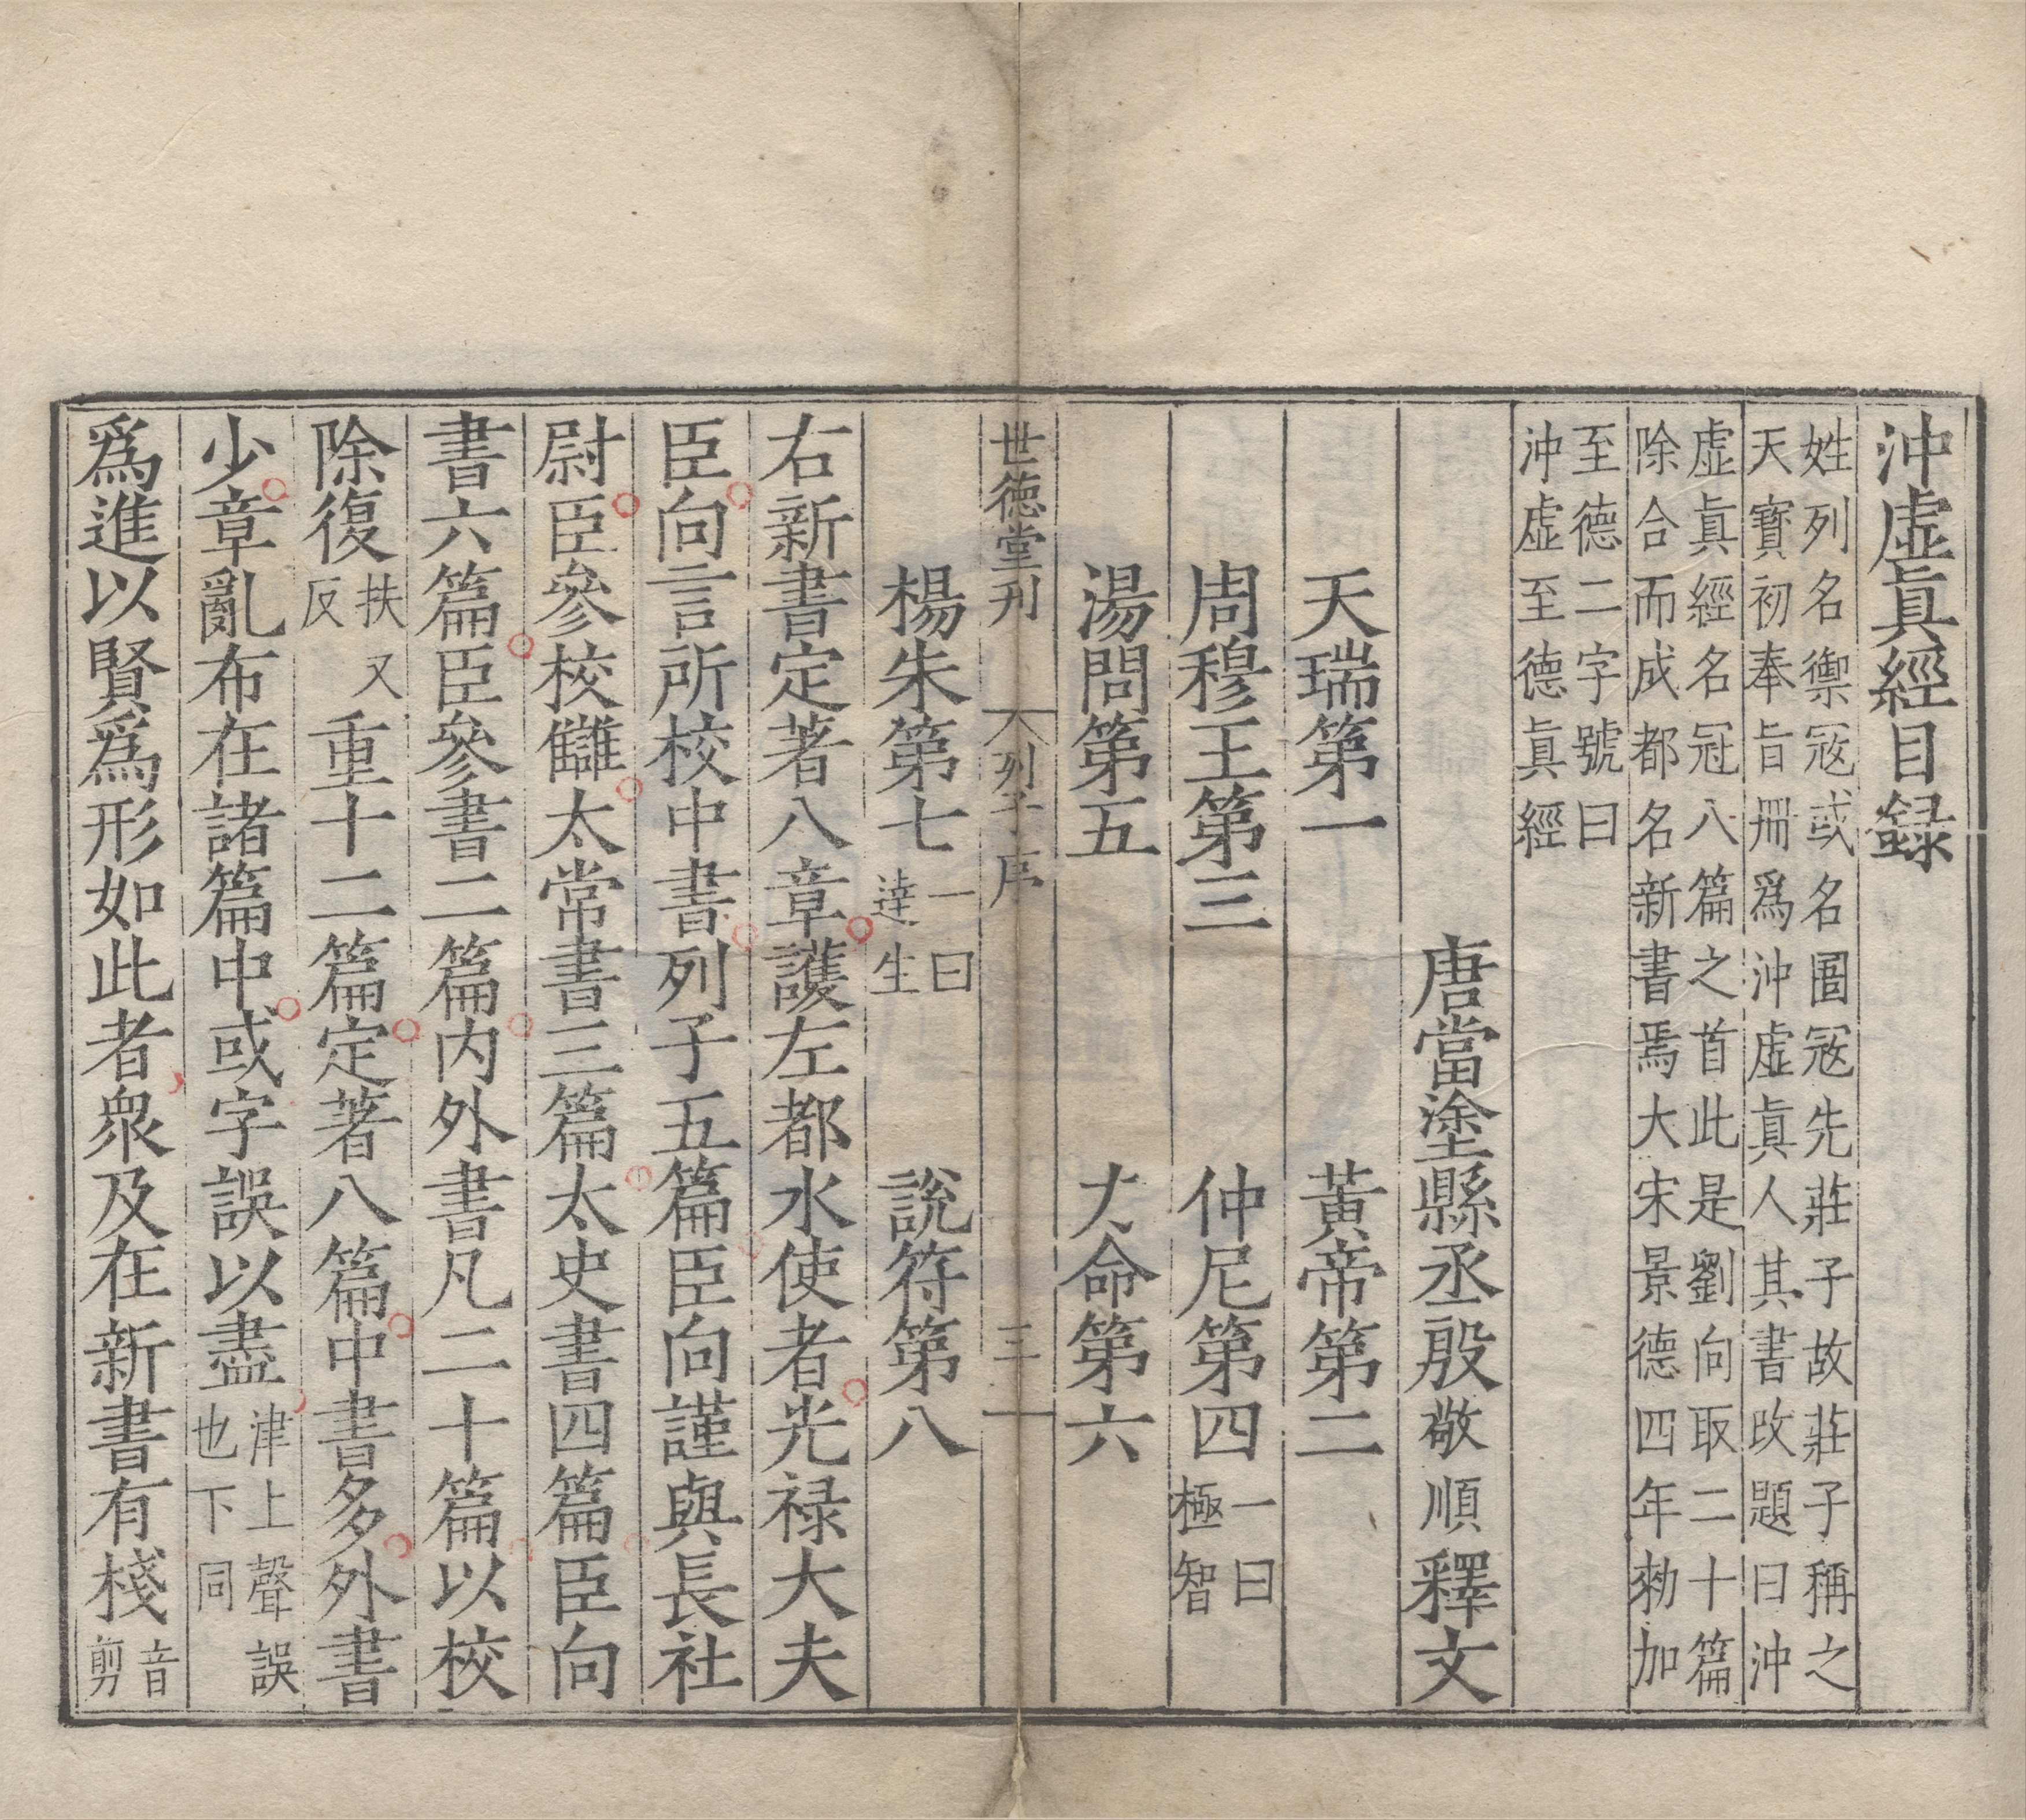 沖虛眞經目録
姓列名禦寇或名圄寇先莊子故莊子稱之
天寶初奉旨冊爲沖虛眞人其書改題曰沖
虛眞經名冠八篇之首此是劉向取二十篇
除合而成都名新書焉大宋景德四年勑加
至德二字號曰
沖虛至德眞經
唐當塗縣丞殷敬順釋文
天瑞第一 黃帝第二
周穆王第三 仲尼第四 一曰極智
湯問第五 力命第六
世德堂刊 列子序 三
楊朱第七 一曰達生 說符第八
右新書定著八章護左都水使者光禄大夫
臣向言所校中書列子五篇臣向謹與長社
尉臣參校讎太常書三篇太史書四篇臣向
書六篇臣參書二篇內外書凡二十篇以校
除復扶又反重十二篇定著八篇中書多外書
少章亂布在諸篇中或字誤以盡津上聲誤也下同
爲進以賢爲形如此者衆及在新書有棧音剪